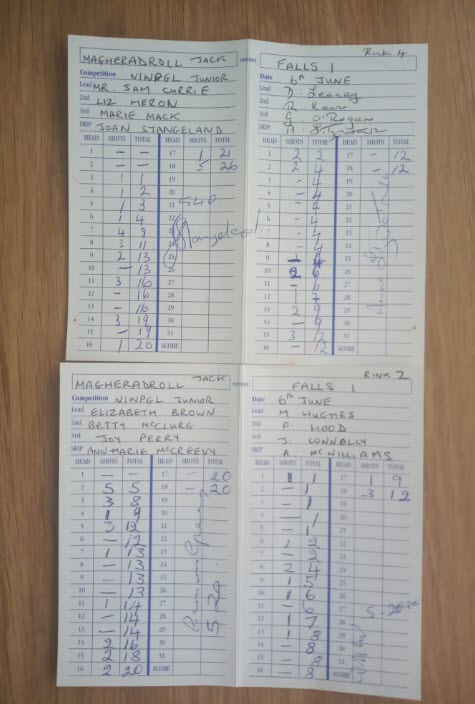 Rink 4
MAGHERADROLL JACK versus FALLS 1
Competition NINPGL JUNIOR Date 6th JUNE
Lead MR. SAM CURRIE D.
2nd LIZ HERON R.
3rd MARIE MACK O'Regan
SKIP JOAN STANGELAND A.
HEAD SHOTS TOTAL HEAD SHOTS TOTAL HEAD SHOTS TOTAL HEAD SHOTS TOTAL
1 - - 17 1 21 1 2 2 17 - 12
2 - - 18 5 26 2 2 4 18 - 12
3 1 1 19 3 - 4 19
4 1 2 20 4 - 4 20
5 1 3 21 5 - 4 21
6 1 4 22 6 - 4 22
7 4 8 23 7 - 4 23
8 3 11 24 8 - 4 24
9 2 13 25 9 - 4 25
10 - 13 26 10 2 6 26
11 3 16 27 11 - 6 27
12 - 16 28 12 1 7 28
13 - 16 29 13 2 9 29
14 3 19 30 14 - 9 30
15 - 19 31 15 3 12 31
16 1 20 SCORE 16 - 12 SCORE
RINK 2
MAGHERADROLL JACK versus FALLS 1
Competition NINPGL JUNIOR Date 6th JUNE
Lead ELIZABETH BROWN Lead M HUGHES
2nd BETTY McCLURG 2nd P. HOOD
3rd JOY PERRY 3rd J. CONNOLLY
SKIP ANN-MARIE McCREEVY SKIP A. McWILLIAMS
HEAD SHOTS TOTAL HEAD SHOTS TOTAL HEAD SHOTS TOTAL HEAD SHOTS TOTAL
1 - - 17 - 20 1 1 1 17 1 9
2 5 5 18 - 20 2 - 1 18 3 12
3 3 8 19 3 - 1 19
4 1 9 20 4 - 1 20
5 3 12 21 5 - 1 21
6 - 12 22 6 1 2 22
7 1 13 23 7 - 2 23
8 - 13 24 8 2 4 24
9 - 13 25 9 1 5 25
10 - 13 26 10 1 6 26
11 1 14 27 11 - 6 27
12 - 14 28 12 1 7 28
13 - 14 29 13 1 8 29
14 2 16 30 14 - 8 30
15 2 18 31 15 - 8 31
16 2 20 SCORE 16 - 8 SCORE